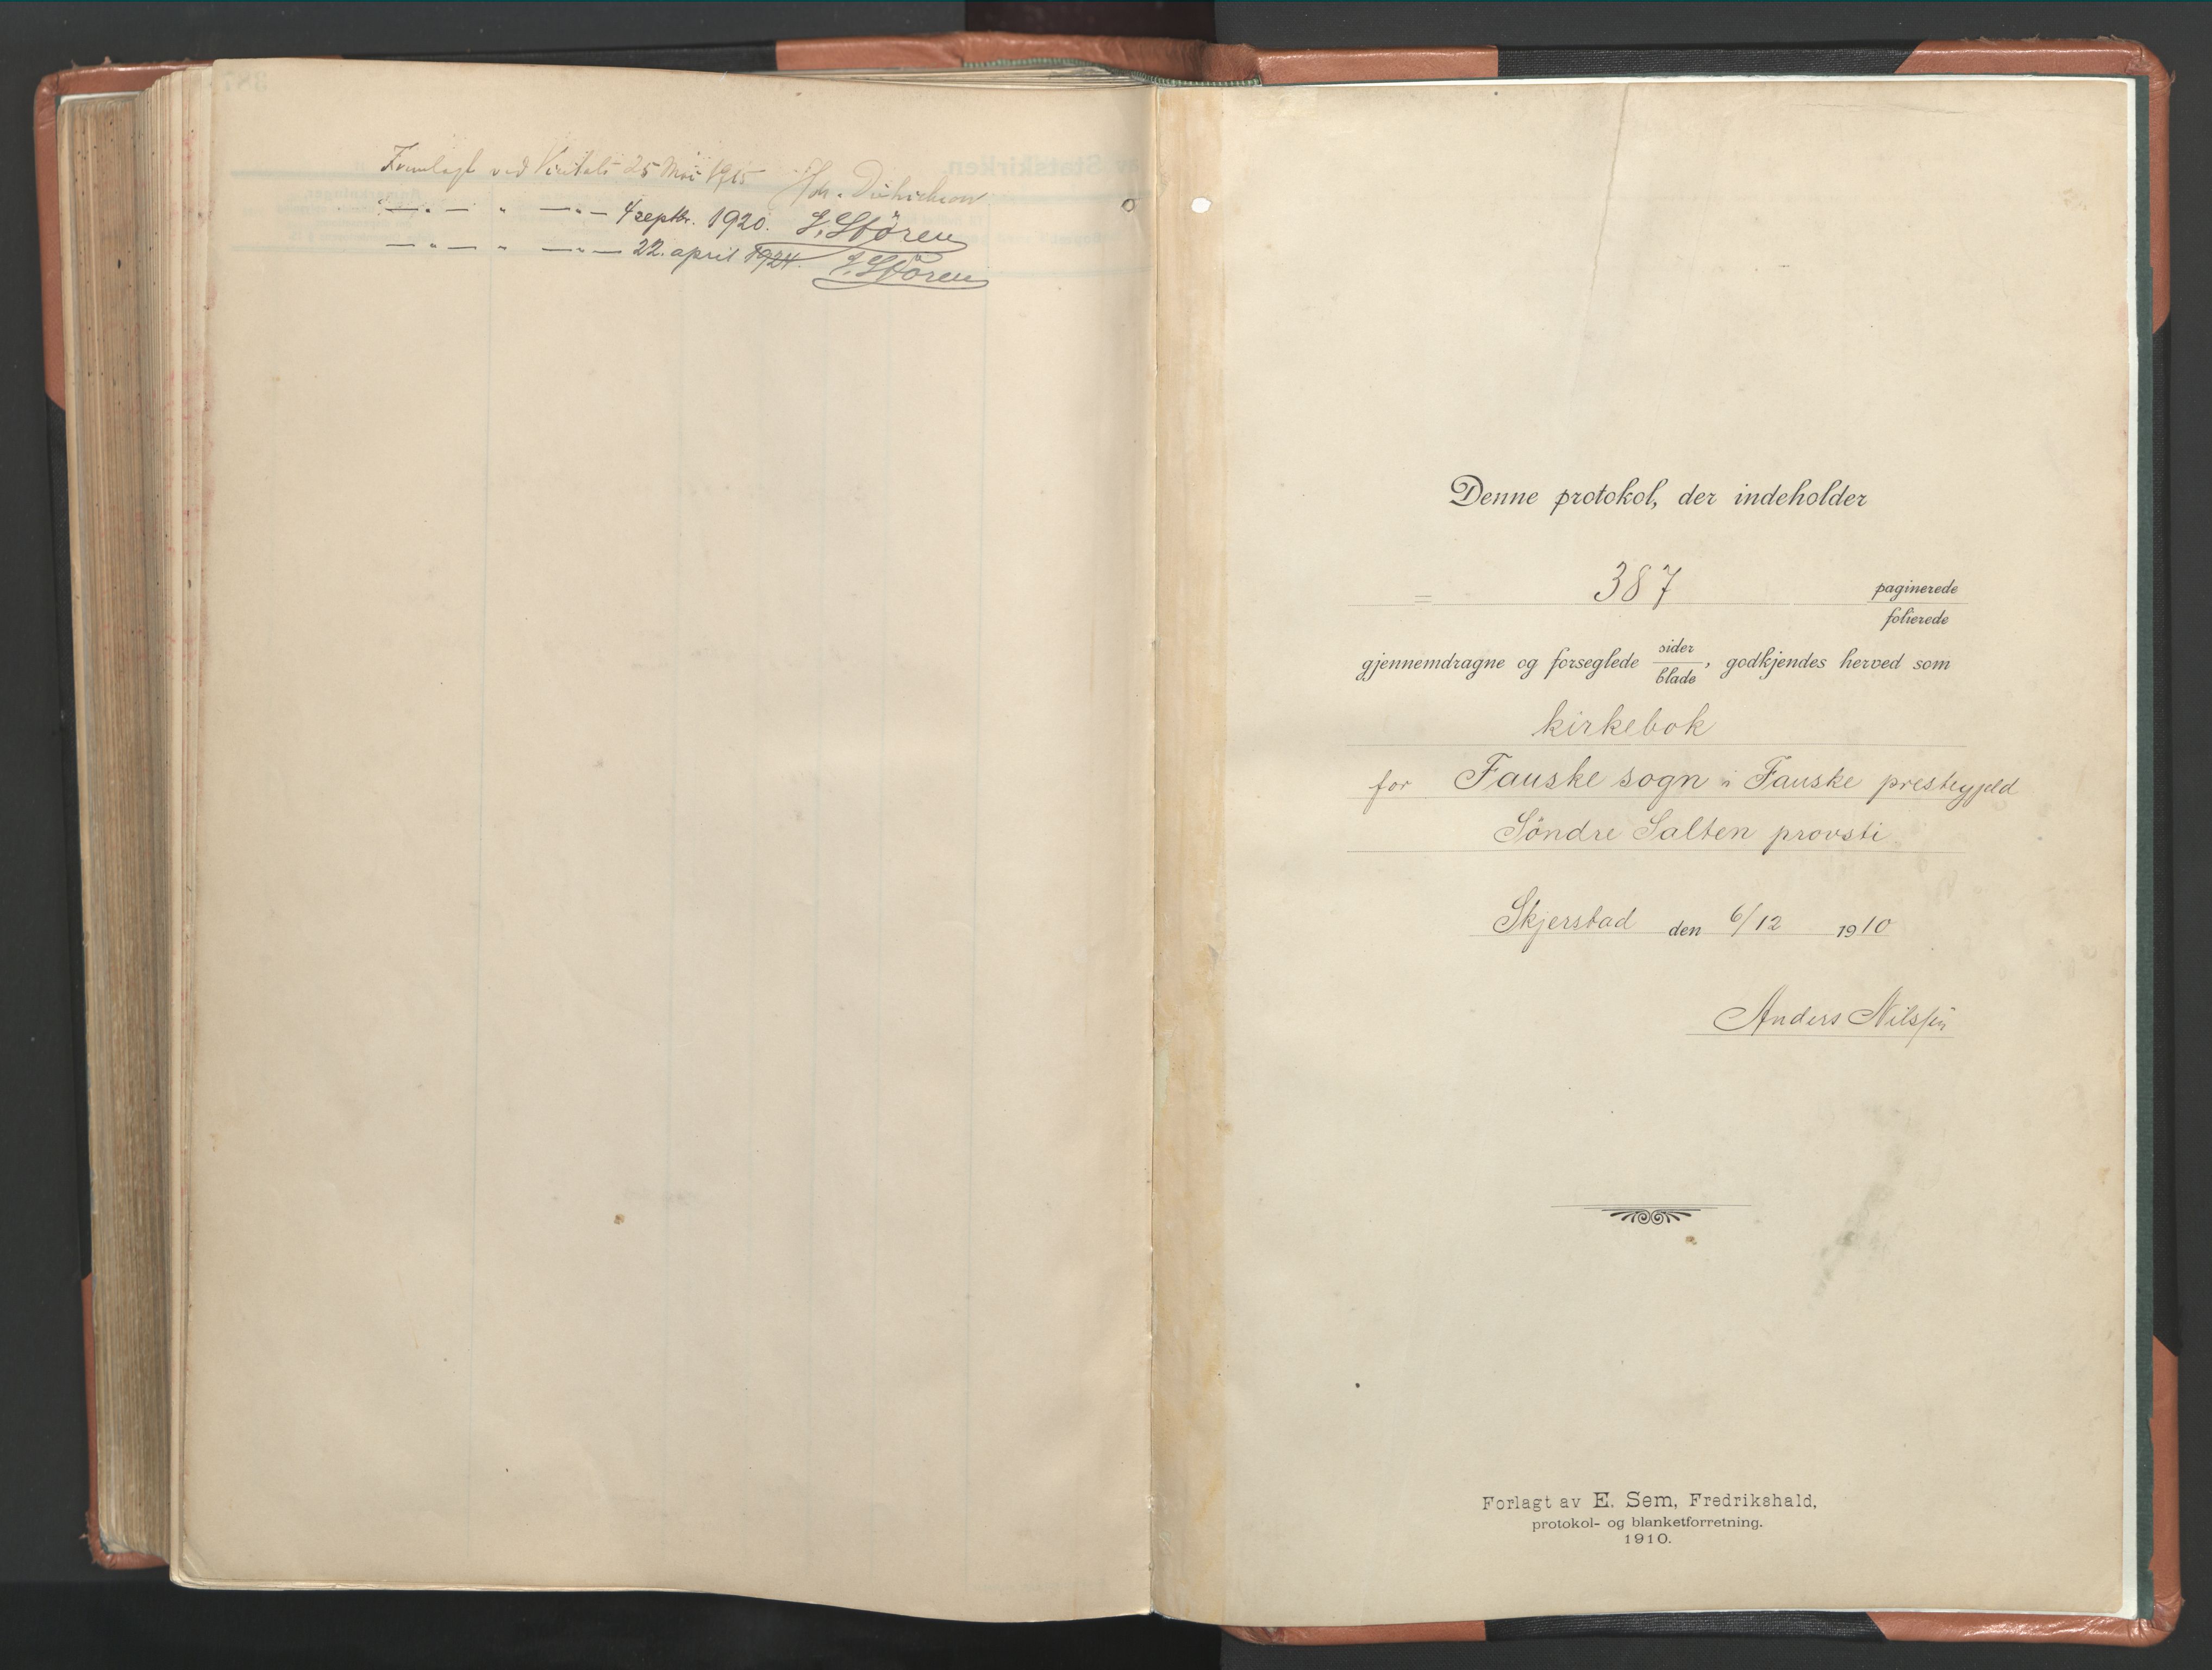 Fremlagt ved Visitats 25 Mai 1915
— " — " — " — 4 septbr. 1920. J. Støren
— " — " — " — 22. april 1924. J. Støren
Denne protokol, der indeholder
= 387 paginerede
folierede
gjennemdragne og forseglede sider/blade, godkjendes herved som
kirkebok
for Fauske sogn i Fauske prestegjeld
Söndre Salten provsti
Skjerstad den 6/12 1910
Anders Nilssen
Forlagt av E. Sem, Fredrikshald,
protokol- og blanketforretning.
1910.